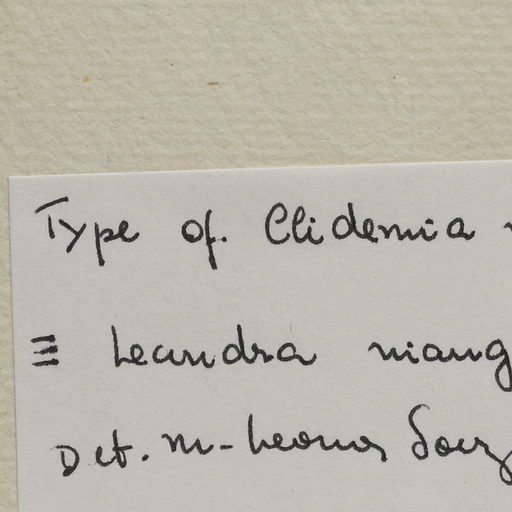 Type of Clidemia
≡ Leandra niang
Det. M-Leonor Souz